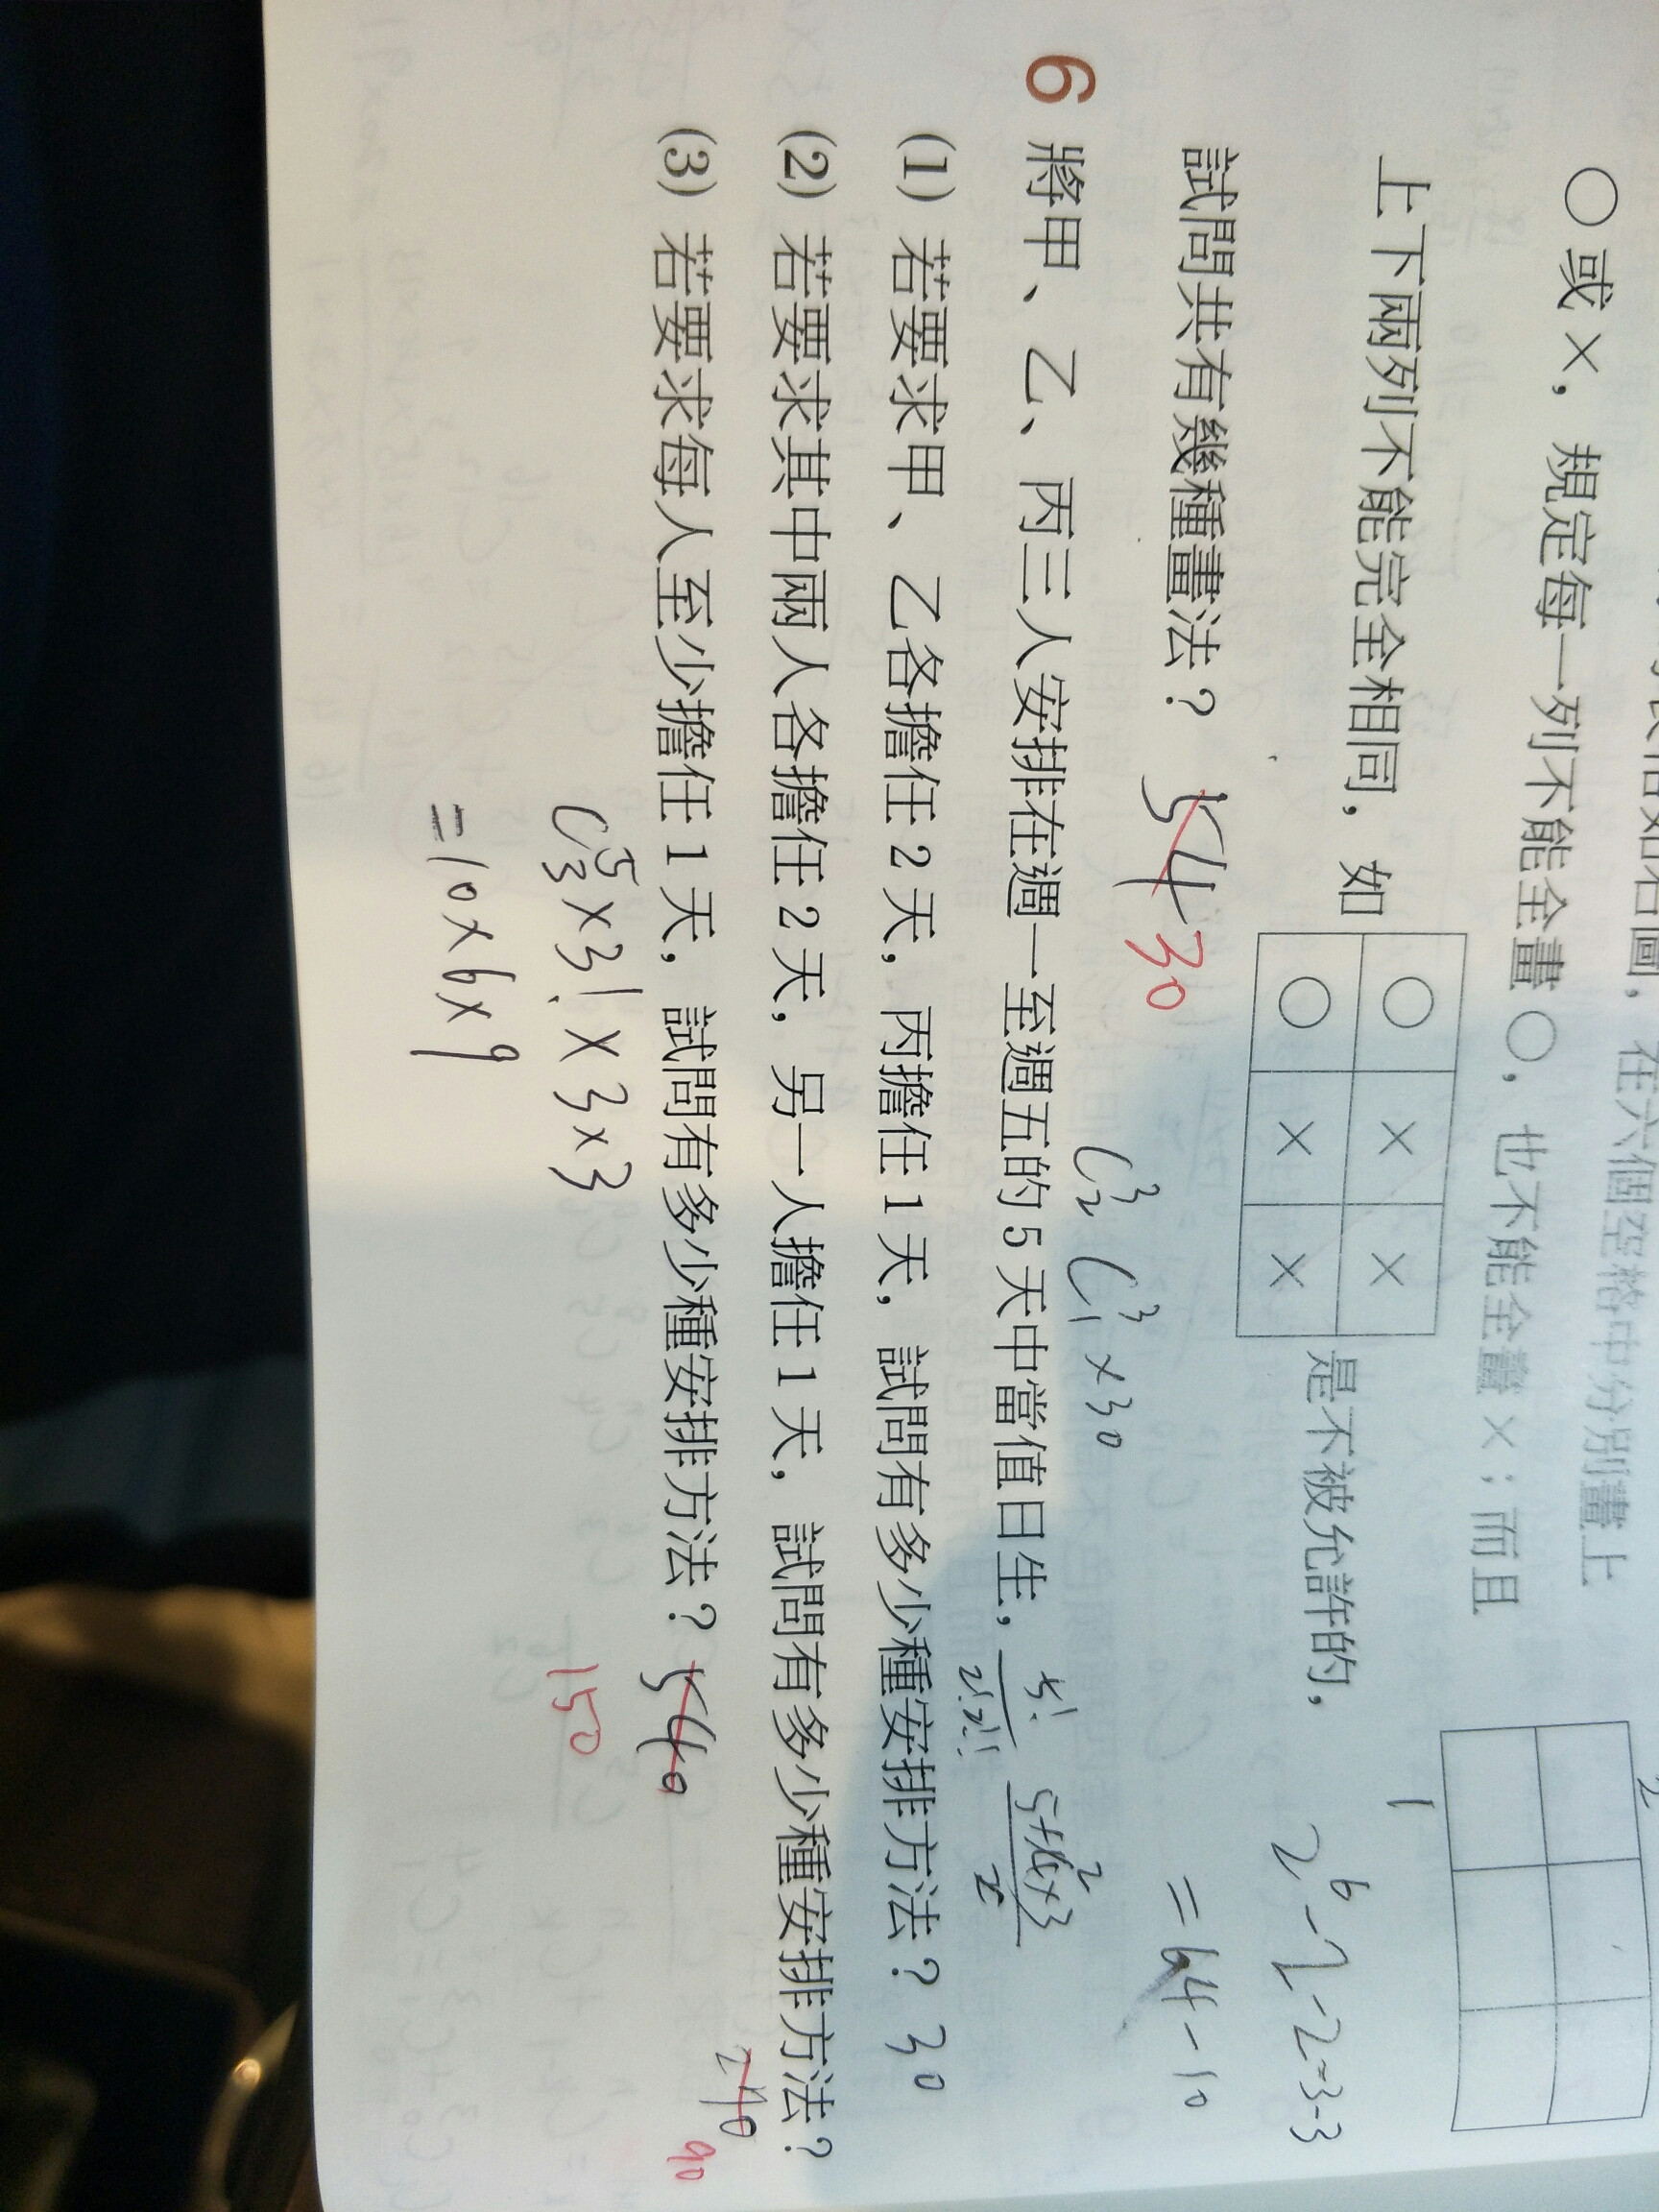 在六個空格中分別畫上
○或×，規定每一列不能全畫○，也不能全畫×；而且
上下兩列不能完全相同，如
○ × ×
○ × ×
是不被允許的，
試問共有幾種畫法？ 54 30
2⁶-2-2-3-3
=64-10
1
C³₂ C³₁ ×30
6 將甲、乙、丙三人安排在週一至週五的5天中當值日生，
5!/2!2!1! 5×4×3/2
(1) 若要求甲、乙各擔任2天，丙擔任1天，試問有多少種安排方法？ 30
(2) 若要求其中兩人各擔任2天，另一人擔任1天，試問有多少種安排方法？
270 90
(3) 若要求每人至少擔任1天，試問有多少種安排方法？ 540
150
C⁵₃×3!×3×3
=10×6×9